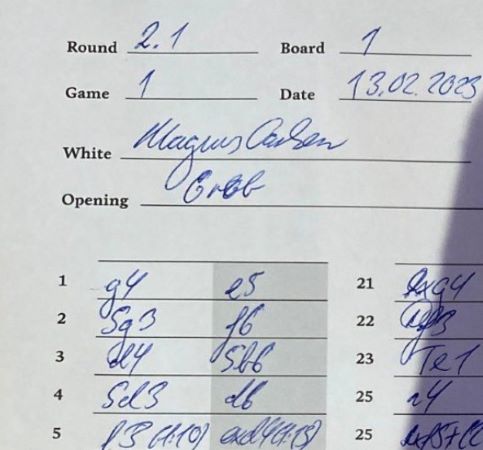 Round 2.1 Board 1
Game 1 Date 13.02.2023
White Magnus Carlsen
Opening Grob
1 g4 e5 21
2 Sg3 f6 22
3 d4 Sb6 23 Te1
4 Sd3 d6 25
5 25